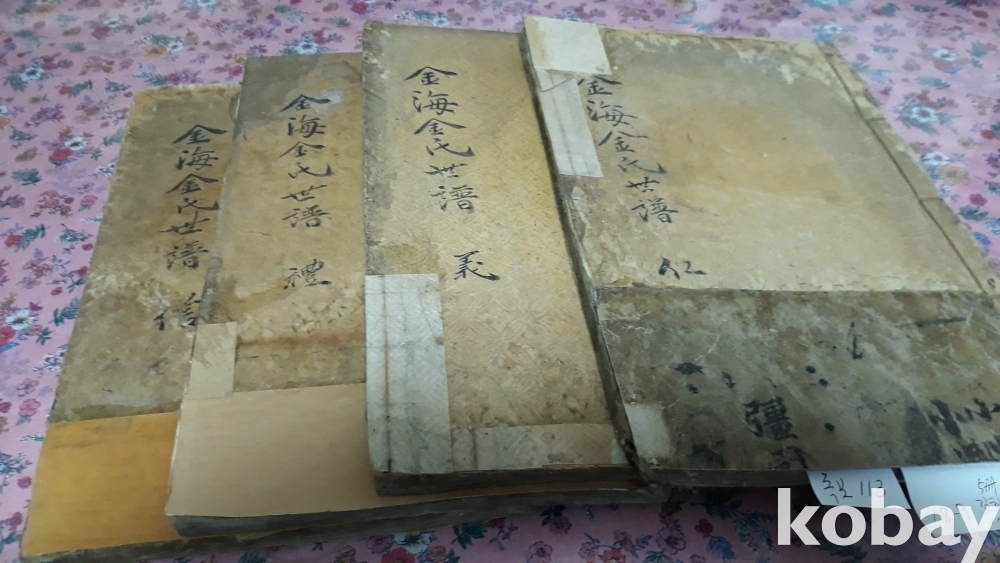 金海金氏世譜 仁
金海金氏世譜 義
金海金氏世譜 禮
金海金氏世譜 信
彊
족보 113
kobay